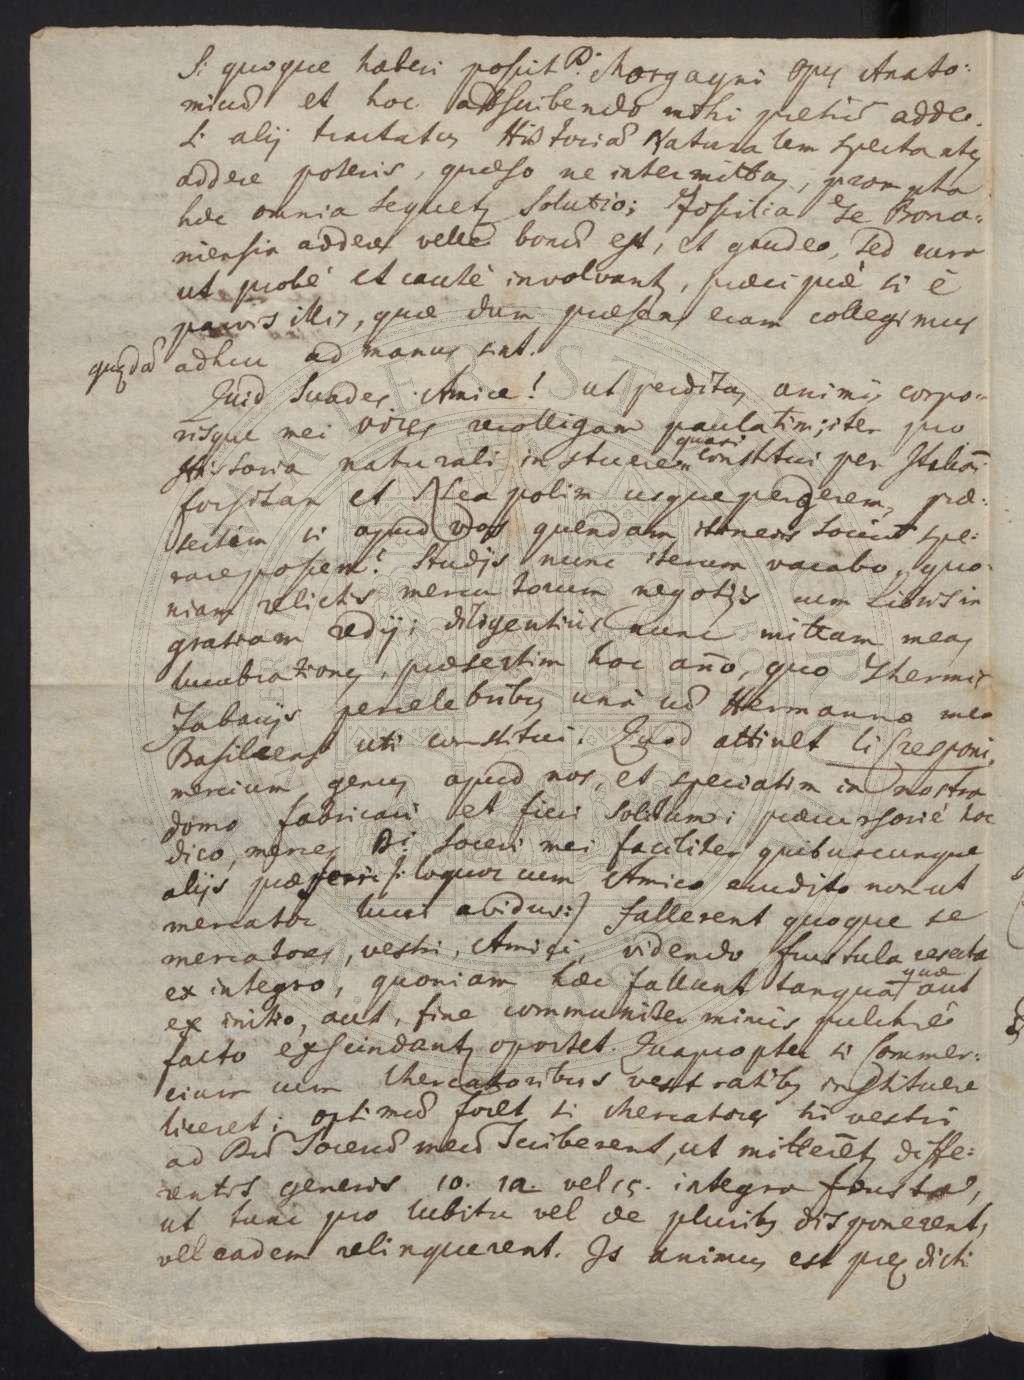 Si quoque haberi possit D. Morgagni opus Anato:
micũ et hoc adscribendo mihi pretiũ adde.
Si alij tractatus Historiã Naturalem spectantes
addere poteris, quæso ne intermittas, prompta
hæc omnia sequetur solutio; Fossilia te Bono=
niensia addere velle bonũ est, et gaudeo, sed cura
ut probè et cautè involvantur, præcipuè si è
parvis illis, quæ dum præsens eram collegimus
quædã adhuc ad manus sint.
Quid Suades Amice! ut perditas animi corpo=
risque mei vires recolligam paulatim; iter pro
Historia naturali instituere quasi constitui per Italiã
forsitan et Neapolim usque pergerem, præ=
sertim si apud vos quendam itineris Sociũ spe=
rare possem? Studijs nunc iterum vacabo, quo=
niam relictis mercatorum negotijs cum Libris in
gratiam redij; diligentius nunc mittam meas
lucubrationes, præsertim hoc año, quo Thermis
Fabarijs percelebribus unà cũ Hermanno meo
Basileensi uti constitui. Quod attinet li Cresponi,
mercium genus apud nos, et speciatim in nostra
domo fabricari et fieri solitum; præcursoriè hoc
dico, merces D. Soceri mei faciliter quibuscunque
alijs præferri /: loquor cum Amico erudito non ut
mercator lucri avidus :/ fallerent quoque se
mercatores, vestri, Amici, videndo frustula resecta
ex integro, quoniam hæc fallunt tanquã quæ aut
ex initio, aut, fine communiter minus pulchrè
facto exscindantur oportet. Quapropter si Commer=
cium cum Mercatoribus vestratibus instituere
liceret; optimũ foret si Mercatores hi vestri
ad Dũ Socerũ meũ Scriberent, ut mitteret diffe=
rentis generis 10. 12. vel 15. integra frusta,
ut tunc pro lubitu vel de pluribus disponerent,
vel eadem relinquerent. Is animus est præ dicti